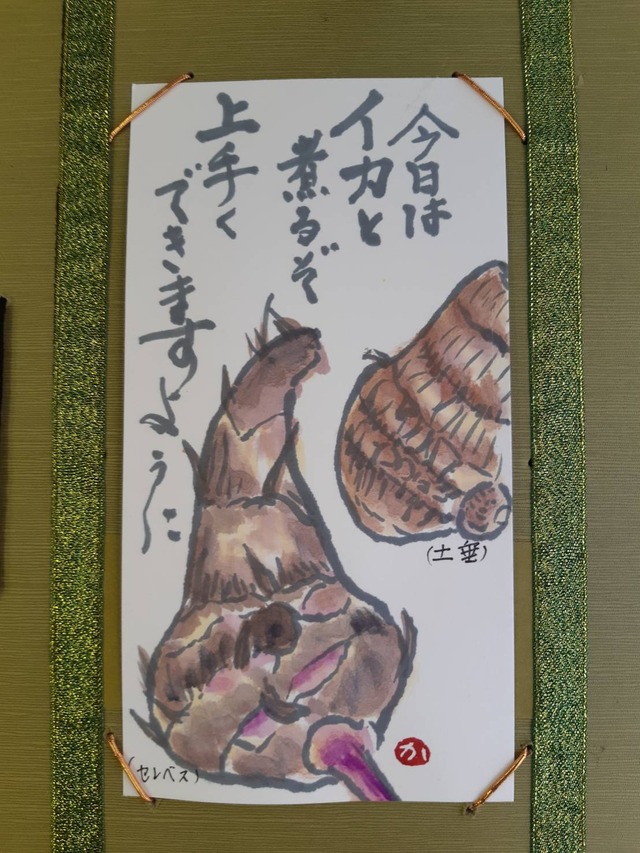 今日は
イカと
煮るぞ
上手く
できますように
(土垂)
(セレベス)
か